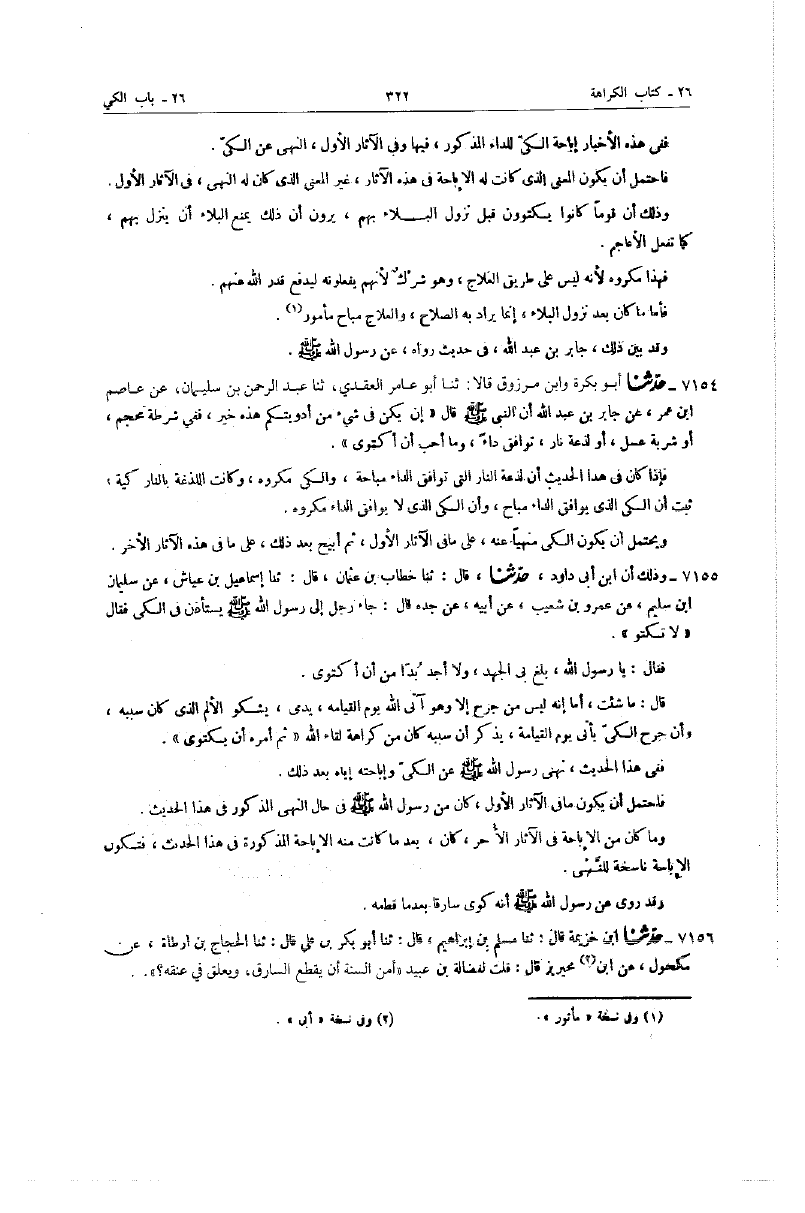 ٢٦ - كتاب الكراهة ٣٢٢ ٢٦ - باب الكي
ففى هذه الأخبار إباحة الكىّ للداء المذكور ، فيها وفى الآثار الأول ، النهى عن الكىّ .
فاحتمل أن يكون المعنى الذى كانت له الإباحة فى هذه الآثار ، غير المعنى الذى كان له النهى ، فى الآثار الأول .
وذلك أن قوماً كانوا يكتوون قبل نزول البـــلاء بهم ، يرون أن ذلك يمنع البلاء أن ينزل بهم ،
كما تفعل الأعاجم .
فهذا مكروه لأنه ليس على طريق العلاج ، وهو شرك لأنهم يفعلونه ليدفع قدر الله عنهم .
فأما ما كان بعد نزول البلاء ، إنما يراد به الصلاح ، والعلاج مباح مأمور(١) .
وقد بين ذلك ، جابر بن عبد الله ، فى حديث رواه ، عن رسول الله ﷺ .
٧١٥٤ - حدثنا أبو بكرة وابن مرزوق قالا : ثنا أبو عامر العقدي، ثنا عبد الرحمن بن سليمان، عن عاصم
ابن عمر ، عن جابر بن عبد الله أن النبى ﷺ قال « إن يكن فى شيء من أدويتكم هذه خير ، ففي شرطة محجم ،
أو شربة عسل ، أو لذعة نار ، توافق داءً ، وما أحب أن أكتوى » .
فإذا كان فى هذا الحديث أن لذعة النار التى توافق الداء مباحة ، والكى مكروه ، وكانت اللذغة بالنار كية ؛
ثبت أن الكى الذى يوافق الداء مباح ، وأن الكى الذى لا يوافق الداء مكروه .
ويحتمل أن يكون الكى منهياً عنه ، على مافى الآثار الأول ، ثم أبيح بعد ذلك ، على ما فى هذه الآثار الأخر .
٧١٥٥ - وذلك أن ابن أبى داود ، حدثنا ، قال : ثنا خطاب بن عثمان ، قال : ثنا إسماعيل بن عياش ، عن سليمان
ابن سليم ، عن عمرو بن شعيب ، عن أبيه ، عن جده قال : جاء رجل إلى رسول الله ﷺ يستأذن فى الكى فقال
« لا تكتو » .
فقال : يا رسول الله ، بلغ بى الجهد ، ولا أجد بُدًا من أن أكتوى .
قال : ما شئت ، أما إنه ليس من جرح إلا وهو آتى الله يوم القيامه ، يدى ، يشكو الألم الذى كان سببه ،
وأن جرح الكىّ يأتى يوم القيامة ، يذكر أن سببه كان من كراهة لقاء الله « ثم أمره أن يكتوى » .
ففى هذا الحديث ، نهى رسول الله ﷺ عن الكىّ وإباحته إياه بعد ذلك .
فاحتمل أن يكون مافى الآثار الأول ، كان من رسول الله ﷺ فى حال النهى المذكور فى هذا الحديث .
وما كان من الإباحة فى الآثار الأخر ، كان ، بعد ما كانت منه الإباحة المذكورة فى هذا الحدث ، فتكون
الإباحة ناسخة للنَّهى .
وقد روى عن رسول الله ﷺ أنه كوى سارقا بعدما قطعه .
٧١٥٦ - حدثنا ابن خزيمة قال : ثنا مسلم بن إبراهيم ، قال : ثنا أبو بكر بن علي قال : ثنا الحجاج بن ارطاة ، عن
مكحول ، عن ابن(٢) محيريز قال : قلت لفضالة بن عبيد «أمن السنة أن يقطع السارق، ويعلق في عنقه؟» .
(١) وفى نسخة « مأثور » . (٢) وفى نسخة « أبى » .